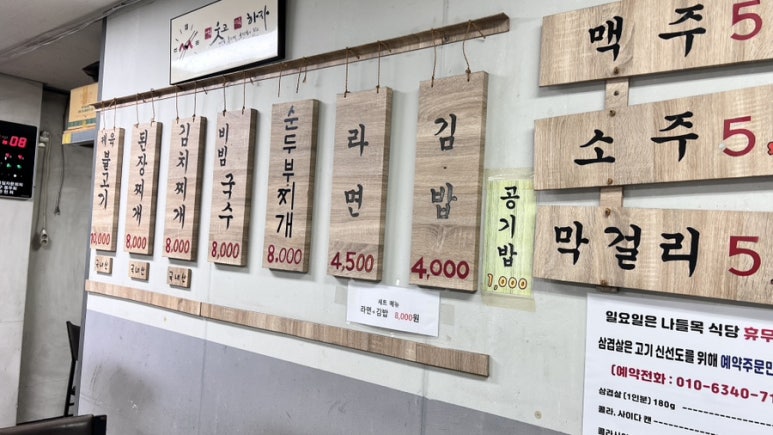 웃고 하자
08
제육 불고기
10,000
국내산
된장찌개
8,000
국내산
김치찌개
8,000
국내산
비빔국수
8,000
순두부찌개
8,000
라면
4,500
김.밥
4,000
공기밥
1,000
세트 메뉴
라면+김밥 8,000원
맥주 5
소주 5,
막걸리 5
일요일은 나들목 식당 휴무
삼겹살은 고기 신선도를 위해 예약주문만
(예약전화 : 010-6340-71
삼겹살 (1인분) 180g
콜라, 사이다 캔